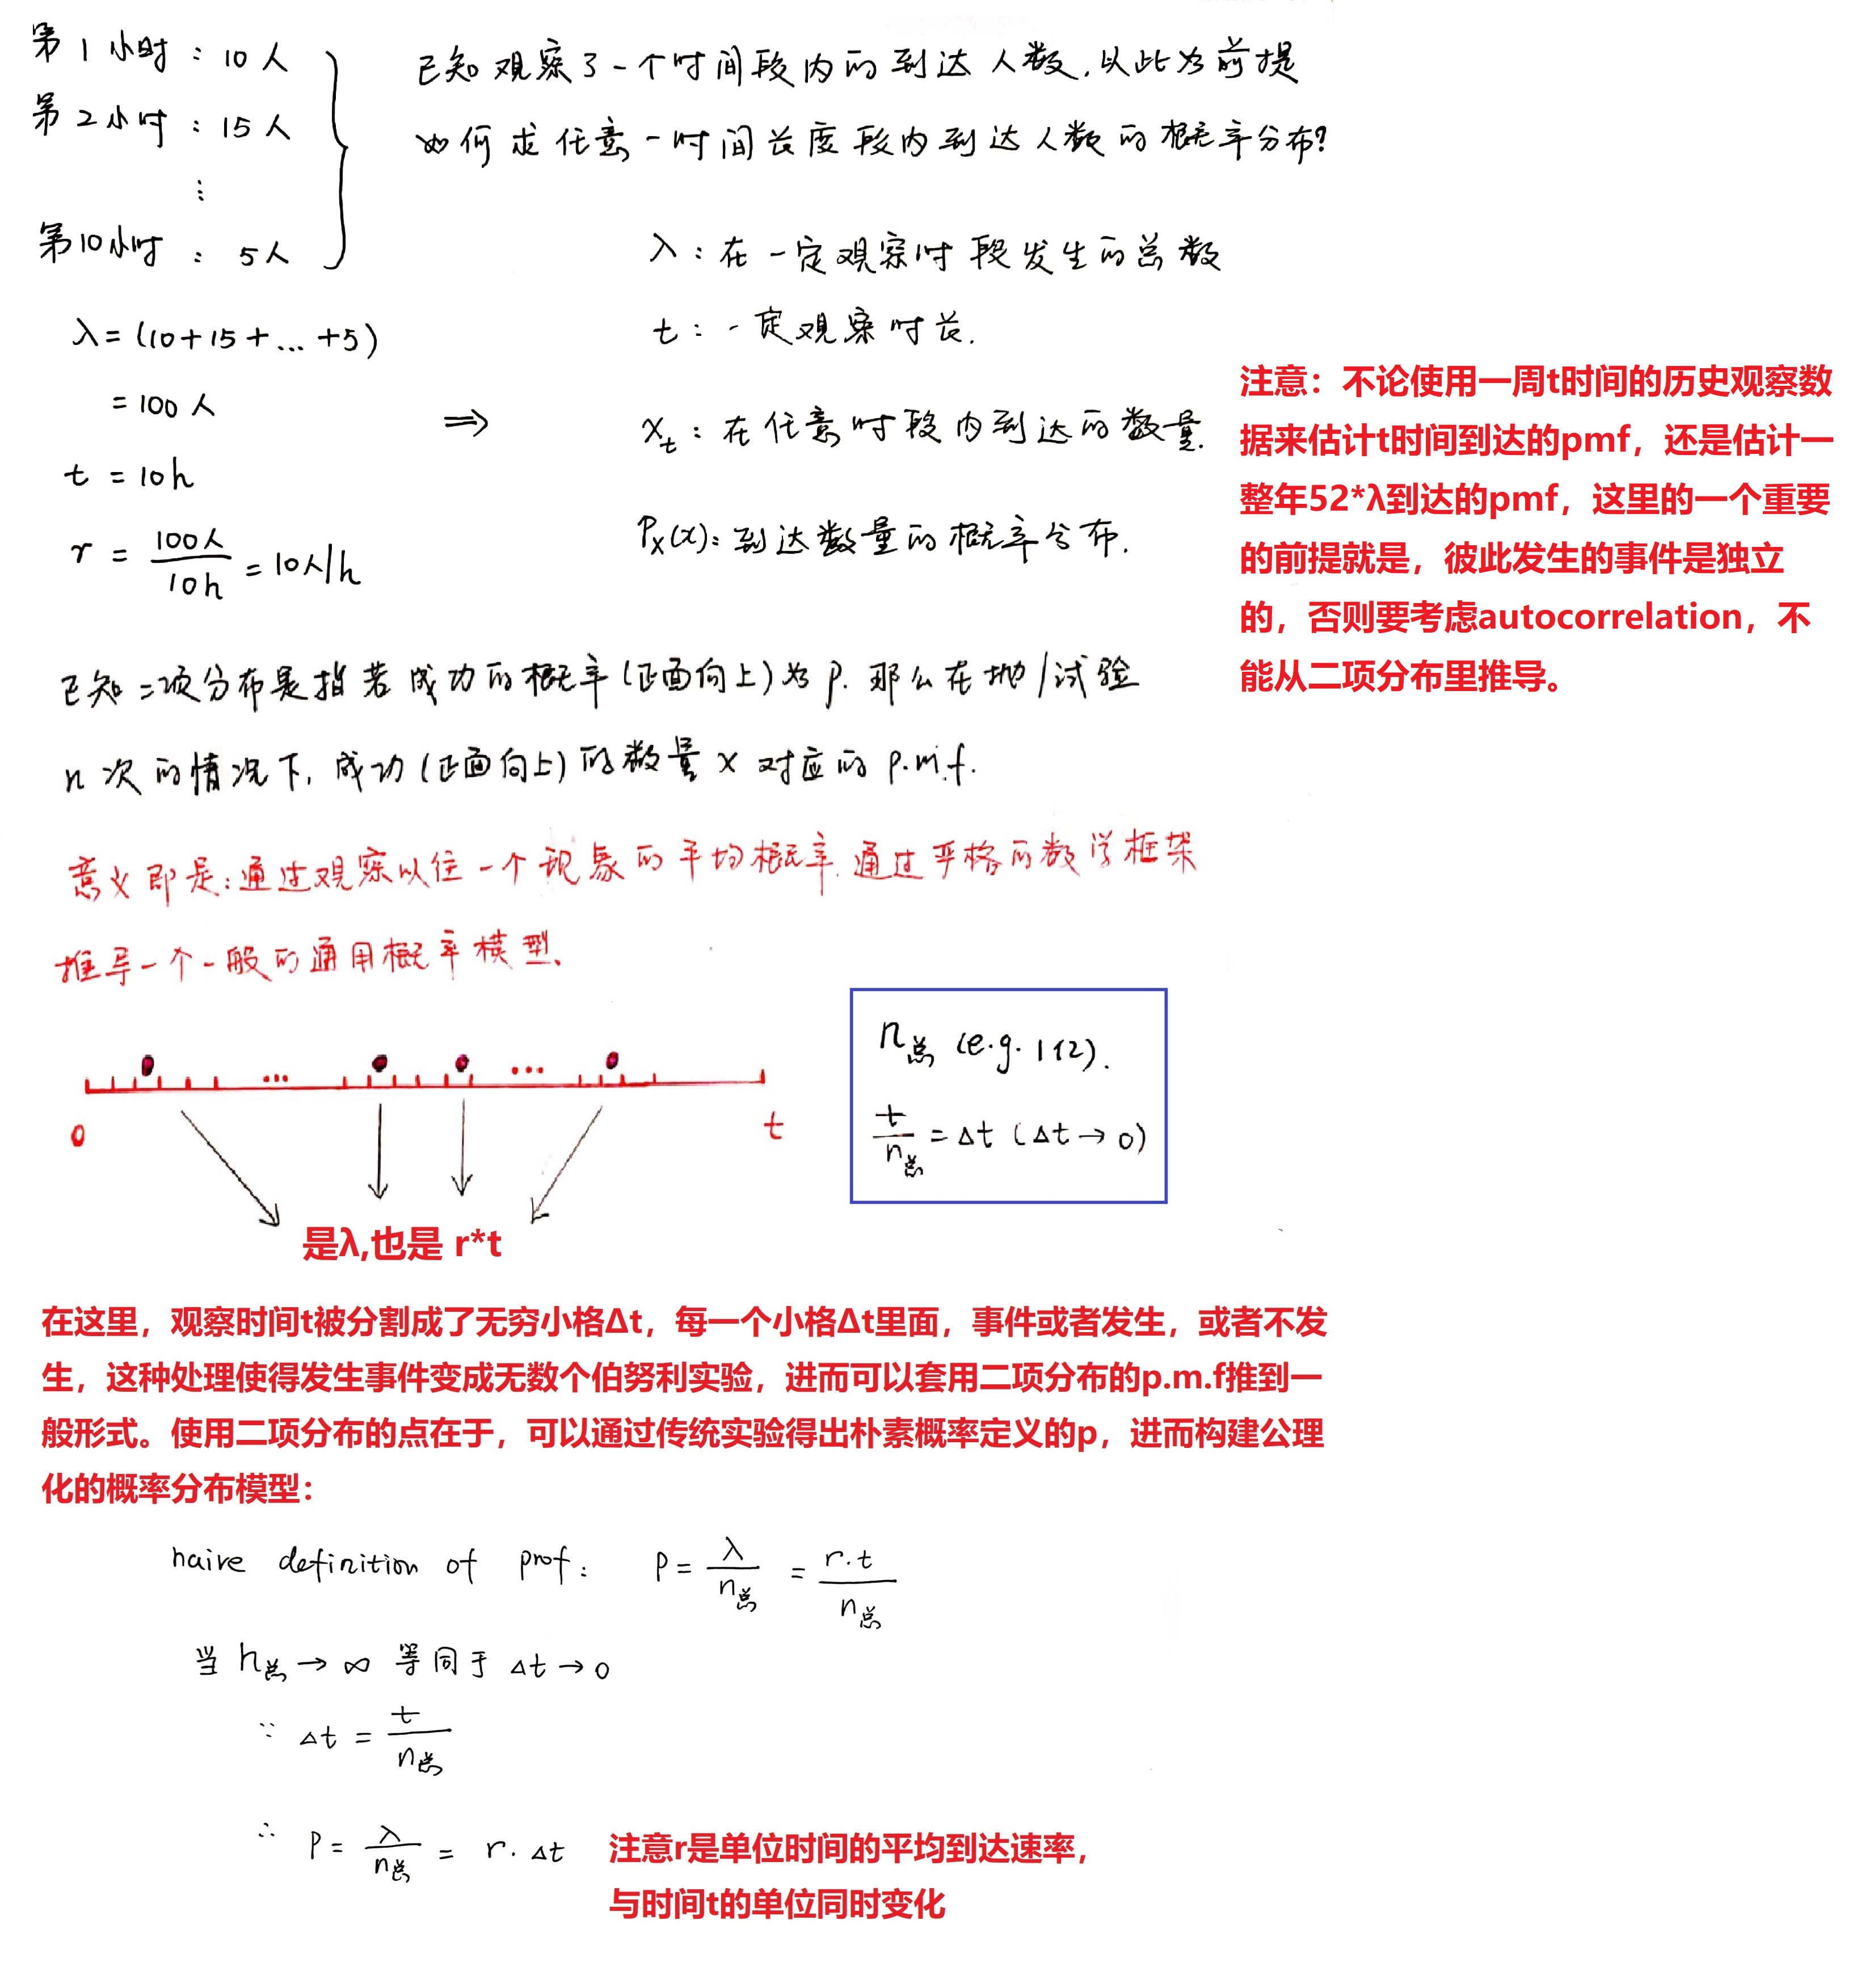 第1小时：10人
第2小时：15人
⋮
第10小时：5人
已知观察了一个时间段内的到达人数，以此为前提
如何求任意一时间长度段内到达人数的概率分布？
λ=(10+15+...+5)
=100人
t=10h
r=100人/10h=10人/h
⇒
λ：在一定观察时段发生的总数
t：一定观察时长.
Xt：在任意时段内到达的数量.
Px(x)：到达数量的概率分布.
注意：不论使用一周t时间的历史观察数
据来估计t时间到达的pmf，还是估计一
整年52*λ到达的pmf，这里的一个重要
的前提就是，彼此发生的事件是独立
的，否则要考虑autocorrelation，不
能从二项分布里推导。
已知二项分布是指若成功的概率(正面向上)为p.那么在抛/试验
n次的情况下，成功(正面向上)的数量x对应的p.m.f.
意义即是：通过观察以往一个现象的平均概率.通过严格的数学框架
推导一个一般的通用概率模型、
... ...
0 t
n总 (e.g. 1亿).
t/n总=Δt (Δt→0)
是λ,也是 r*t
在这里，观察时间t被分割成了无穷小格Δt，每一个小格Δt里面，事件或者发生，或者不发
生，这种处理使得发生事件变成无数个伯努利实验，进而可以套用二项分布的p.m.f推到一
般形式。使用二项分布的点在于，可以通过传统实验得出朴素概率定义的p，进而构建公理
化的概率分布模型：
naive definition of prof: P=λ/n总=r.t/n总
当n总→∞ 等同于 Δt→0
∵ Δt=t/n总
∴ P=λ/n总=r.Δt
注意r是单位时间的平均到达速率，
与时间t的单位同时变化